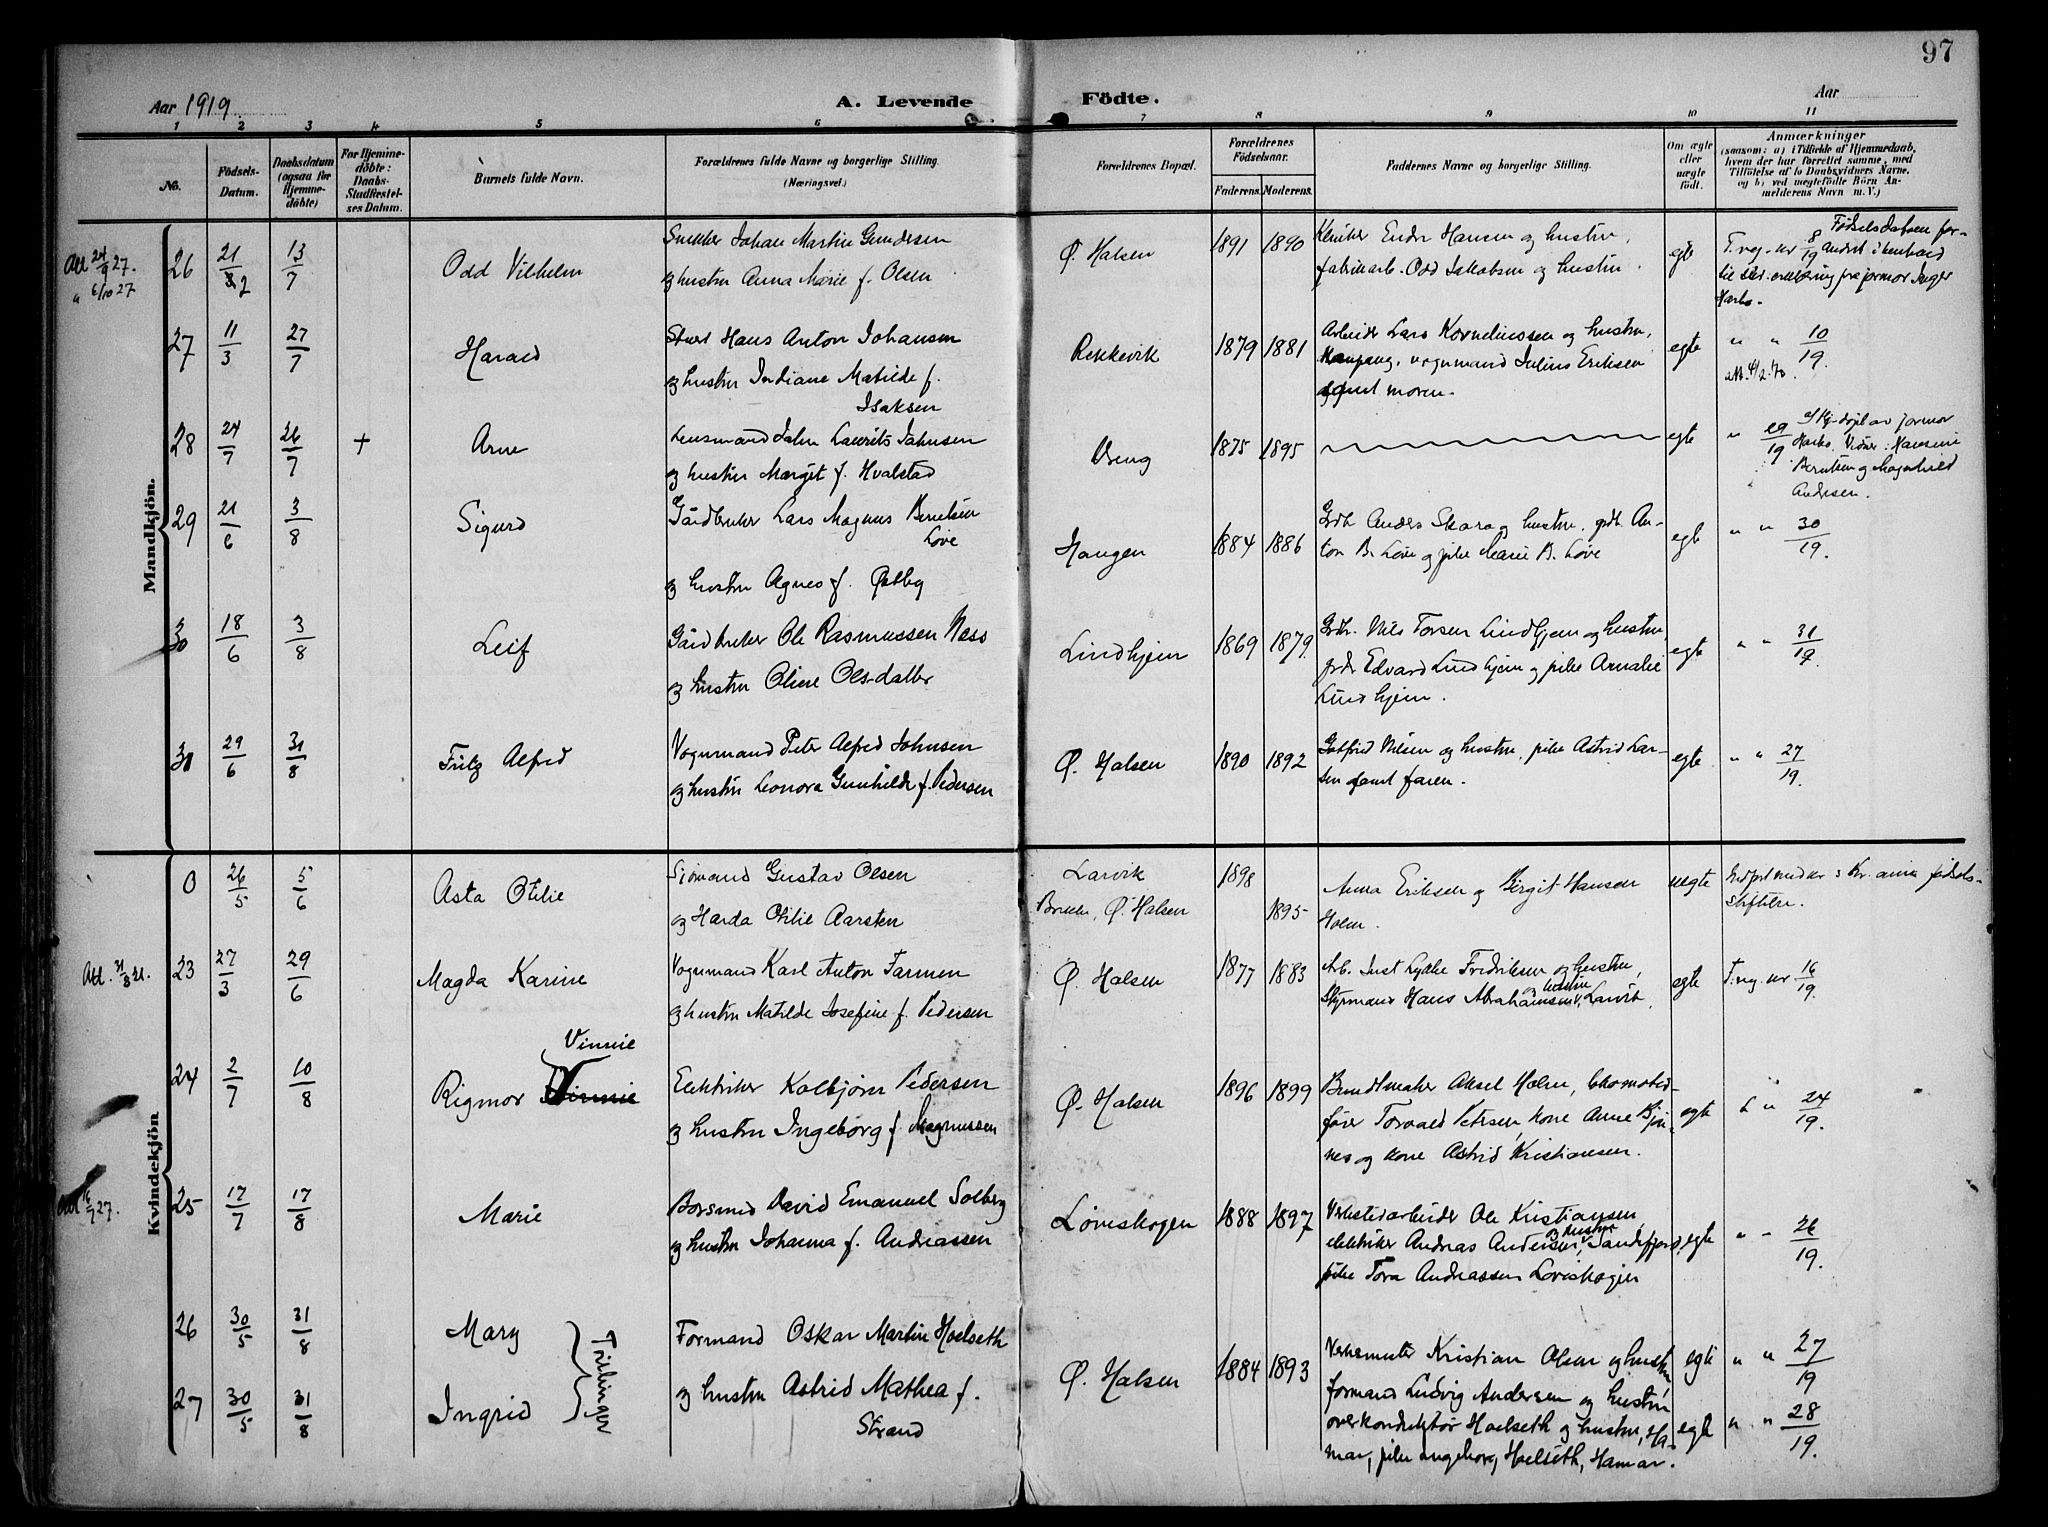 97
Aar 1919.
A. Levende Födte.
Aar
1 2 3 4 5 6 7 8 9 10 11
No.
Födsels-Datum.
Daabsdatum (ogsaa for Hjemme-döbte)
For Hjemme-döbte: Daabs-Stadfæstel-ses Datum.
Barnets fulde Navn.
Forældrenes fulde Navne og borgerlige Stilling.
(Næringsvei.)
Forældrenes Bopæl.
Forældrenes Födselsaar.
Faderens. Moderens.
Faddernes Navne og borgerlige Stilling.
Om ægte eller uægte født.
Anmærkninger
(saasom: a) i Tilfælde af Hjemmedaab, hvem der har forrettet samme, med Tilföielse af to Daabsvidners Navne, og b) ved uegtefödte Börn An-melderens Navn m. V.)
Mandkjön.
26 21/2 13/7 Odd Vilhelm
Snekker Johan Martin Gundersen
og hustru Anna Marie f. Olsen
Ø. Halsen 1891 1890
Endre Hansen og hustru,
fabrikarb. Odd Jakobsen og hustru.
egte
T. reg. nr 8/19
27 11/3 27/7 Harald
Hans Anton Johansen
og hustru Indiane Matilde f.
Isaksen
Rekkevik 1879 1881
Arbeider Lars Korneliussen og hustru,
Kaupang, vognmand Julius Eriksen
samt moren.
egte " " 10/19
28 24/7 26/7 + Arne
Lensmand John Laurits Johnsen
og hustru Margit f. Hvalstad
Vreng 1875 1895
egte " 29/19
Andersen.
29 21/6 3/8 Sigurd
Gårdbruker Lars Magnus Berntsen
Løve
og hustru Agnes f. Østby
Haugen 1884 1886
Grdb. Anders Skara og hustru, grdb. An-
ton B. Løve og pike Marie B. Løve
egte " " 30/19.
30 18/6 3/8 Leif
Gårdbruker Ole Rasmussen Næss
og hustru Oline Olsdatter
Lindhjem 1869 1879
Grdb. Nils Torsen Lindhjem og hustru,
grdb Edvard Lindhjem og pike Amalie
Lindhjem.
egte " " 31/19.
31 29/6 31/8 Fritz Alfred
Vognmand Peter Alfred Johnsen
og hustru Leonora Gunhilde f. Pedersen
Ø. Halsen 1890 1892
Gotfred Nilsen og hustru, pike Astrid Lar-
sen samt faren.
egte " " 27/19.
Kvindekjön
0 26/5 5/6 Asta Otilie
Sjömand Gustav Olsen
og Harda Otilie Aarsten
Larvik 1898
Ø. Halsen 1895
Anna Eriksen og Birgit Hansen
Holm.
uegte
23 27/3 29/6 Magda Karine
Vognmand Karl Anton Farmen
og hustru Matilde Josefine f. Pedersen
Ø. Halsen 1877 1883
Arb. Just Lydke Fredriksen og hustru,
Styrmand Hans Abrahamsen og hustru, Larvik.
egte T. reg. nr 16/19.
24 2/7 10/8 Rigmor Vinnie
Elektriker Kolbjørn Pedersen
og hustru Ingeborg f. Magnussen
Ø. Halsen 1896 1899
Buntmaker Aksel Holm, lokomotiv-
fører Torvald Petersen, kone Anne Bjøn-
nes og kone Astrid Kristiansen.
egte " " 24/19.
25 17/7 17/8 Marie
David Emanuel Solberg
og hustru Johanna f. Andreassen
Løveskogen 1888 1897
Verkstedarbeider Ole Kristiansen,
elektriker Andreas Andersen og hustru, Sandefjord,
pike Tora Andreassen Løveskogen
egte " " 26/19.
26 30/5 31/8 Mary
27 30/5 31/8 Ingrid
Trilinger
Formand Oskar Martin Hoelseth
og hustru Astrid Mathea f.
Strand
Ø. Halsen 1884 1893
Verksmester Kristian Olsen og hustru,
formand Ludvig Andersen og hustru,
overkonduktør Hoelseth og hustru, Ha-
mar, pike Ingeborg Hoelseth, Hamar.
egte " " 27/19
egte " " 28/19.